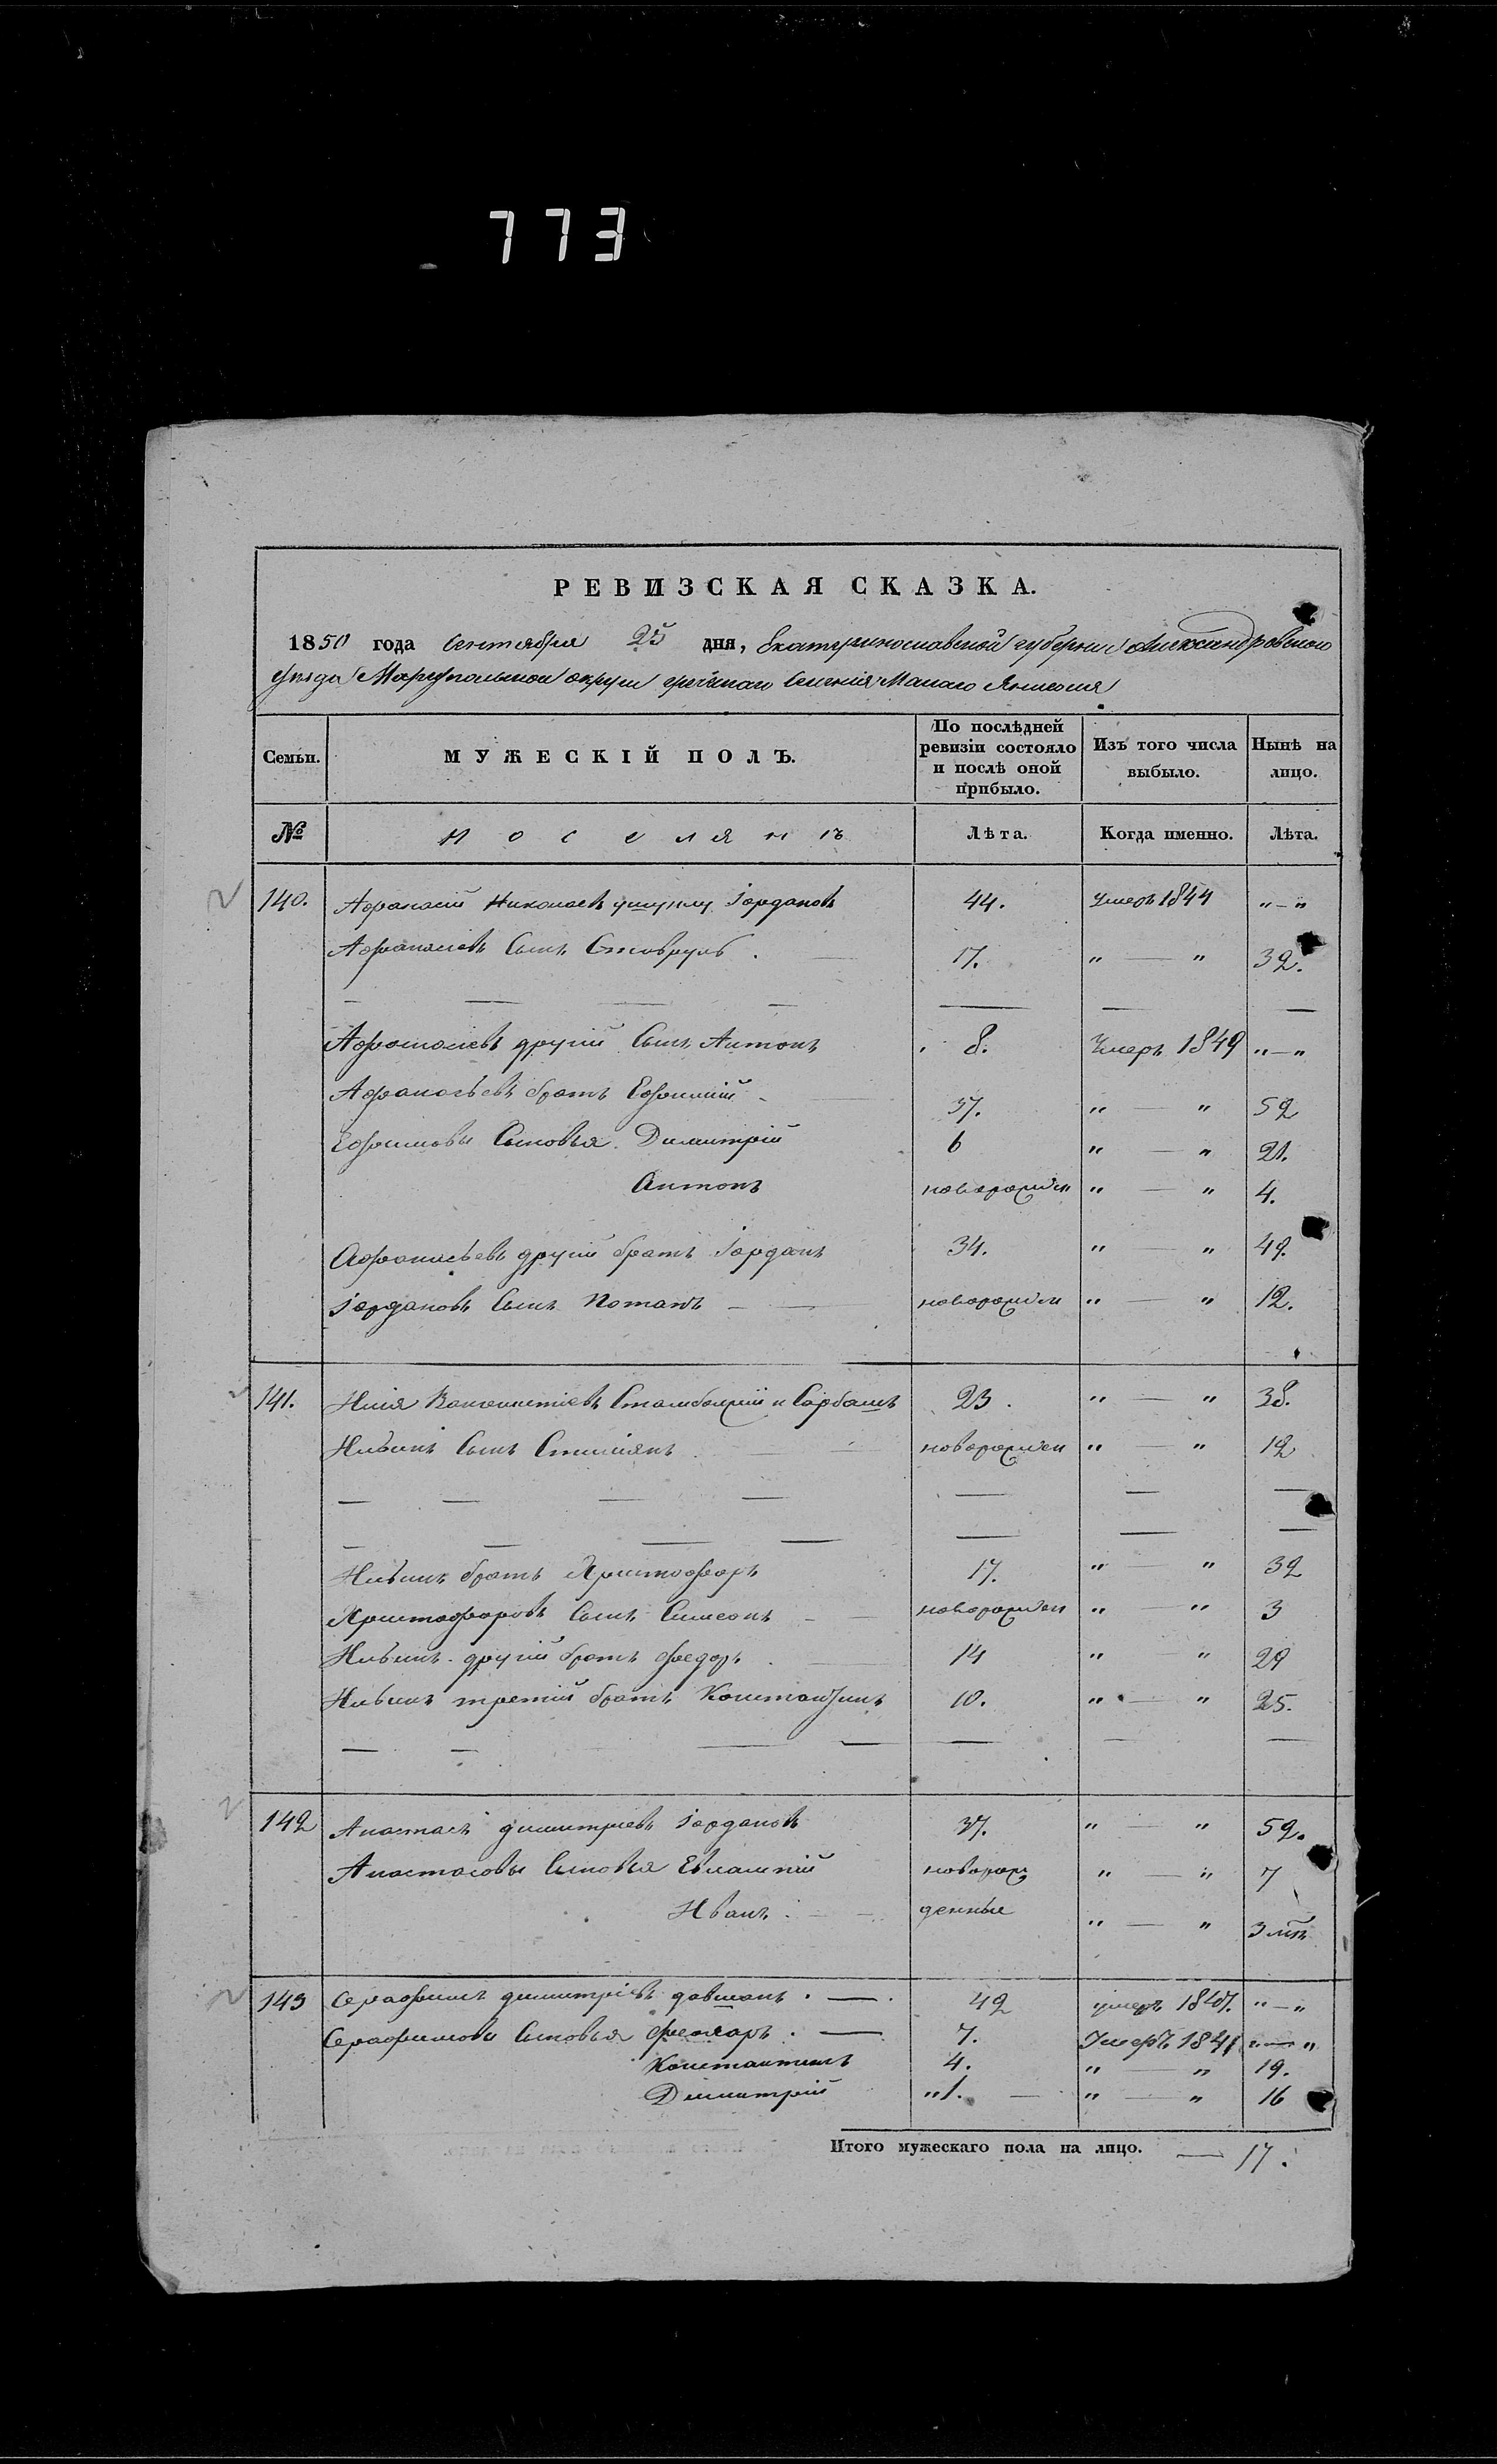 773
РЕВИЗСКАЯ СКАЗКА.
1850 года Сентября 25 дня, Екатеринославской губернии Александровского
уезда Мариупольской округи греческаго Селенія Малаго Янисоля
Семьи. МУЖЕСКІЙ ПОЛЪ. По послѣдней ревизіи состояло и послѣ оной прибыло. Изъ того числа выбыло. Нынѣ на лицо.
№ поселянъ Лѣта. Когда именно. Лѣта.
140. Афанасій Николаевъ Іордановъ 44. Умеръ 1844 „—„
Афанасіевъ Сынъ Ставруль. 17. „ — „ 32.
Афанасіевъ другій Сынъ Антонъ 8. Умеръ 1849 „—„
Афанасьевъ братъ Ефимій 37. „ — „ 52
Ефимовы Сыновья Димитрій 6 „ — „ 21.
Антонъ новорожден „ — „ 4.
Афанасьевъ другій братъ Іорданъ 34. „ — „ 49.
Іордановъ Сынъ Потапъ новорожден „ — „ 12.
141. Илія Константіевъ Стамболжій и Сарбашъ 23. „ — „ 38.
Ильинъ Сынъ Стиліянъ новорожден „ — „ 12
Ильинъ братъ Христофоръ 17. „ — „ 32
Христофоровъ Сынъ Симеонъ новорожден „ — „ 3
Ильинъ другій братъ Федоръ 14 „ — „ 29
Ильинъ третій братъ Константинъ 10. „ — „ 25.
142 Анастасъ Димитріевъ Іордановъ 37. „ — „ 52.
Анастасовы Сыновья Евлампій новорож „ — „ 7
Иванъ. денные „ — „ 3 мѣ
143 Серафимъ Димитріевъ Довшанъ. 42 умеръ 1847. „—„
Серафимовы Сыновья Феодаръ. 7. Умеръ 1841 „—„
Константинъ 4. „ — „ 19.
Димитрій „1. „ — „ 16
Итого мужескаго пола на лицо. — 17.